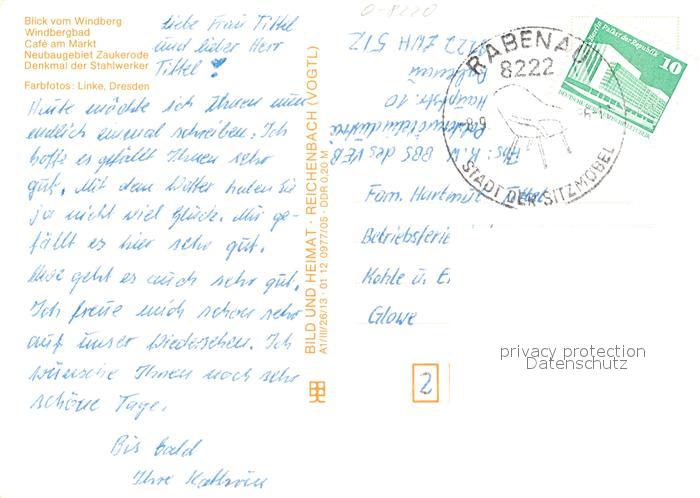 Blick vom Windberg
Windbergbad
Café am Markt
Neubaugebiet Zaukerode
Denkmal der Stahlwerker
Farbfotos: Linke, Dresden
Liebe Frau Tittel
und lieber Herr
Tittel!
Heute möchte ich Ihnen nun
endlich einmal schreiben. Ich
hoffe es gefällt Ihnen sehr
gut. Mit dem Wetter haben Sie
ja nicht viel Glück. Mir ge-
fällt es hier sehr gut.
geht es auch sehr gut.
Ich freue mich schon sehr
auf unser Wiedersehen. Ich
wünsche Ihnen noch sehr
schöne Tage.
Bis bald
Ihre Kathrin
BILD UND HEIMAT · REICHENBACH (VOGTL)
A1/III/26/13 · 01 12 0977/05 · DDR 0,20 M
O-8220
Abs: K. W. BBS des VEB
Polstermöbelindustrie
Hauptstr. 10
Rabenau
8222 ZWH 512
RABENAU
8222
STADT DER SITZMÖBEL
Berlin Palast der Republik
10
DEUTSCHE DEMOKRATISCHE REPUBLIK
Fam. Hartmut Tittel
Betriebsferie
Kohle u. E
Glowe
2
privacy protection
Datenschutz